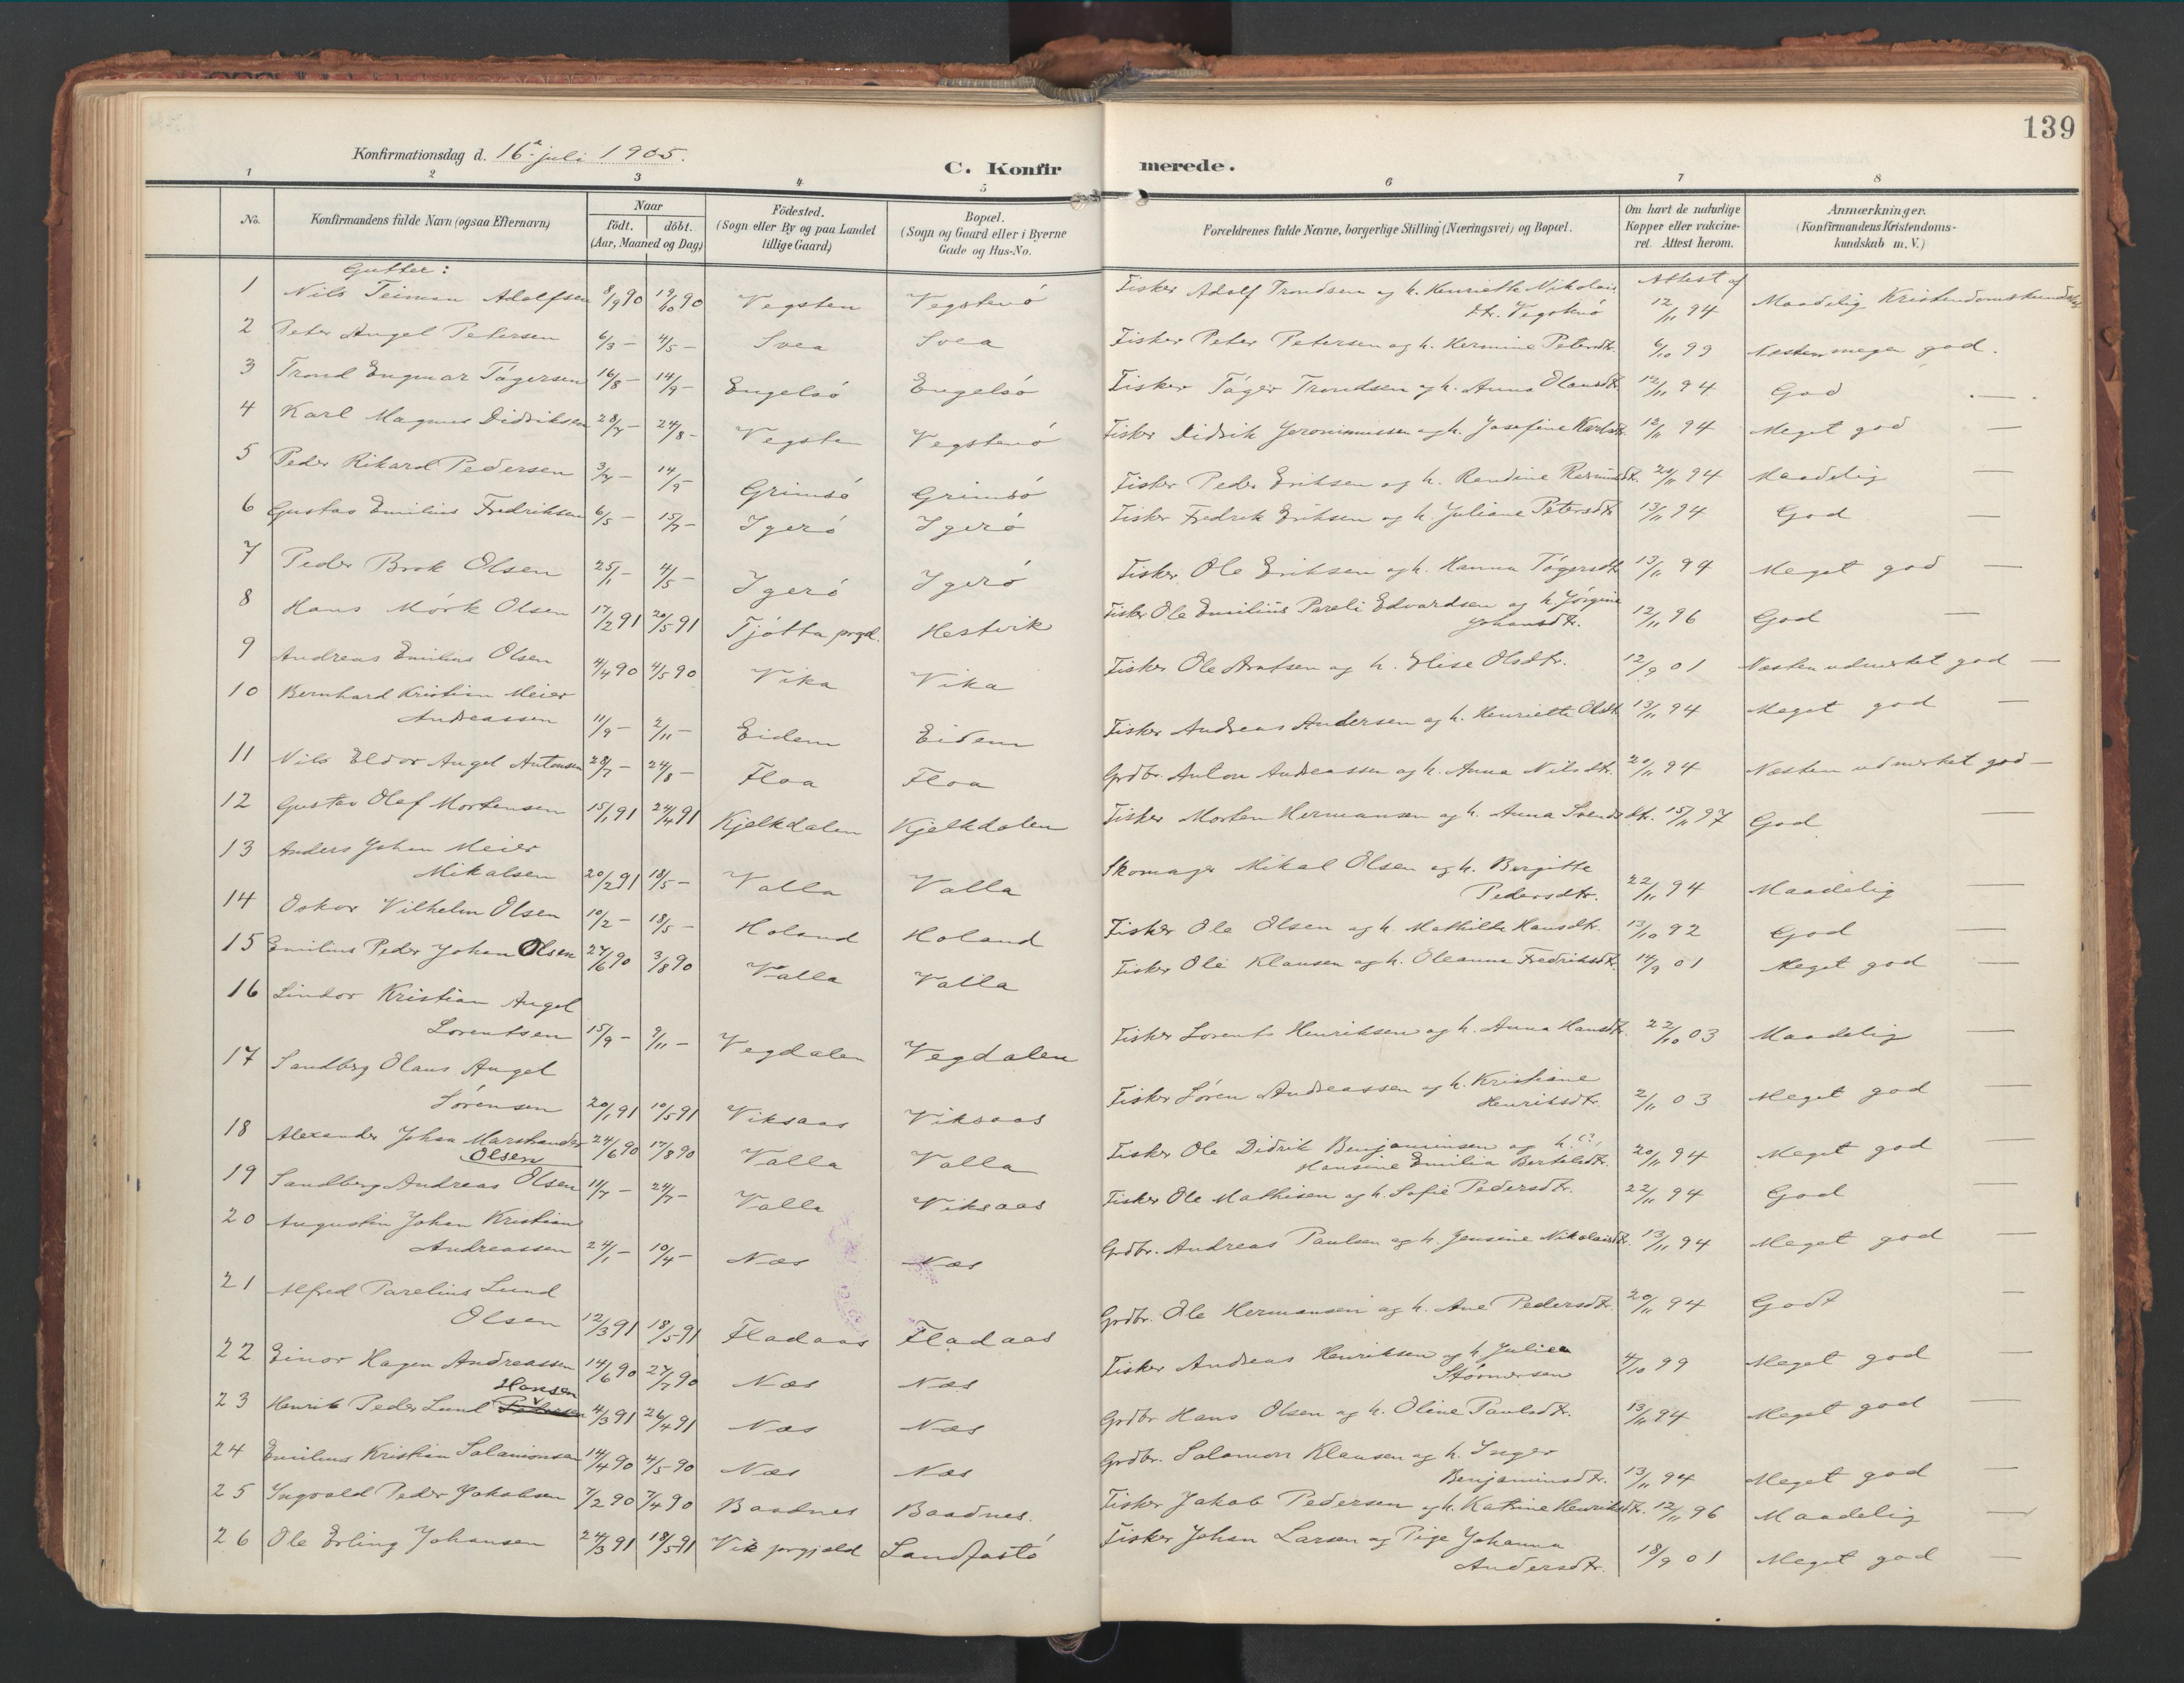 139
Konfirmationsdag d. 16de juli 1905.
C. Konfirmerede.
1 2 3 4 5 6 7 8
No. Konfirmandens fulde Navn (ogsaa Efternavn) Naar födt. döbt. (Aar, Maaned og Dag) Födested. (Sogn eller By og paa Landet tillige Gaard) Bopæl. (Sogn og Gaard eller i Byerne Gade og Hus-No. Forældrenes fulde Navne, borgerlige Stilling (Næringsvei) og Bopæl. Om havt de naturlige Kopper eller vakcineret. Attest herom. Anmærkninger. (Konfirmandens Kristendomskundskab m. V.)
Gutter:
1 Nils Teiman Adolfsen 8/9 90 19/10 90 Vegsten Vegstenö Fisker Adolf Trondsen og h. Henriette Nikolaidtr. Vegstenö Attest af 12/11 94 Maadelig Kristendomskundskab
2 Peter Angel Petersen 6/3 — 4/5 — Svea Svea Fisker Peter Petersen og h. Hermine Petersdtr. 6/10 99 Næsten meget god.
3 Trond Engmar Tögersen 16/8 — 14/9 — Engelsö Engelsö Fisker Töger Trondsen og h. Anna Olausdtr. 12/11 94 God —
4 Karl Magnus Didriksen 28/7 — 24/8 — Vegsten Vegstenö Fisker Didrik Jeronimussen og h. Josefine Karlsdtr. 12/11 94 Meget god —
5 Peder Rikard Pedersen 3/7 — 14/9 — Grimsö Grimsö Fisker Peder Eriksen og h. Rendine 20/11 94 Maadelig —
6 Gustav Emilius Fredriksen 6/5 — 15/7 — Igerö Igerö Fisker Fredrik Eriksen og h. Juliane Petersdtr. 13/11 94 God —
7 Peder Brok Olsen 25/1 — 4/5 — Igerö Igerö Fisker Ole Eriksen og h. Hanna Tögersdtr. 13/11 94 Meget god —
8 Hans Mörk Olsen 17/2 91 20/5 91 Tjötta prgd. Hestvik Fisker Ole Emilius Pareli Edvardsen og h. Jörgine Johansdtr. 12/11 96 God —
9 Andreas Emilius Olsen 4/4 90 4/5 90 Vika Vika Fisker Ole Arntsen og h. Elise Olsdtr. 12/9 01 Næsten udmerket god —
10 Bernhard Kristian Meier Andreassen 11/9 — 2/11 — Eidem Eidem Fisker Andreas Andersen og h. Henriette Olsdtr. 13/11 94 Meget god —
11 Nils Eldor Angel Antonsen 28/7 — 24/8 — Floa Floa Grdbr. Anton Andreassen og h. Anna Nilsdtr. 20/11 94 Næsten udmerket god —
12 Gustav Olaf Mortensen 15/1 91 24/4 91 Kjelkdalen Kjelkdalen Fisker Morten Hermansen og h. Anna Svendsdtr. 15/11 97 God —
13 Anders Johan Meier Mikalsen 20/2 91 18/5 — Valla Valla Skomager Mikal Olsen og h. Bergitte Pedersdtr. 22/11 94 Maadelig —
14 Oskar Vilhelm Olsen 10/2 — 18/5 — Holand Holand Fisker Ole Olsen og h. Mathilde Hansdtr. 13/10 92 God —
15 Emilius Peder Johan Olsen 27/6 90 3/8 90 Valla Valla Fisker Ole Klausen og h. Oleanna Fredriksdtr. 14/9 01 Meget god —
16 Lindor Kristian Angel Lorentsen 15/9 — 9/11 — Vegdalen Vegdalen Fisker Lorents Henriksen og h. Anna Hansdtr. 22/10 03 Maadelig —
17 Sandberg Olaus Angel Sörensen 20/1 91 10/5 91 Viksaas Viksaas Fisker Sören Andreassen og h. Kristiane Henriksdtr. 2/11 03 Meget god —
18 Alexander Johan Olsen 24/6 90 17/8 90 Valla Valla Fisker Ole Didrik Benjaminsen og h. Hansine Emilia Bertelsdtr. 20/11 94 Meget god —
19 Sandberg Andreas Olsen 11/7 — 24/7 — Valla Viksaas Fisker Ole Mathisen og h. Sofie Pedersdtr. 22/11 94 God —
20 Augustin Johan Kristian Andreassen 24/1 — 10/4 — Næs Næs Grdbr. Andreas Paulsen og h. Jensine Nikolaisdtr. 13/11 94 Meget god —
21 Alfred Parelius Lund Olsen 12/3 91 18/5 91 Fladaas Fladaas Grdbr. Ole Hermansen og h. Ane Pedersdtr. 20/11 94 Godt —
22 Einar Hagen Andreassen 14/6 90 27/7 90 Næs Næs Fisker Andreas Henriksen og h. Julie Störmersen 4/10 99 Meget god —
23 Henrik Peder Lund Hansen 4/3 91 26/4 91 Næs Næs Grdbr Hans Olsen og h. Oline Paulsdtr. 13/11 94 Meget god —
24 Emilius Kristian Salamonsen 14/4 90 4/5 90 Næs Næs Grdbr. Salomon Klausen og h. Inger Benjaminsdtr. 13/11 94 Meget god —
25 Ingvald Peder Jakobsen 7/2 90 7/4 90 Baadnes Baadnes. Fisker Jakob Pedersen og h. Katrine Henriksdtr. 12/11 96 Maadelig —
26 Ole Erling Johansen 24/3 91 18/5 91 Vik prgjæld Sandfastö Fisker Johan Larsen og Pige Johanna Andersdtr. 18/9 01 Meget god —